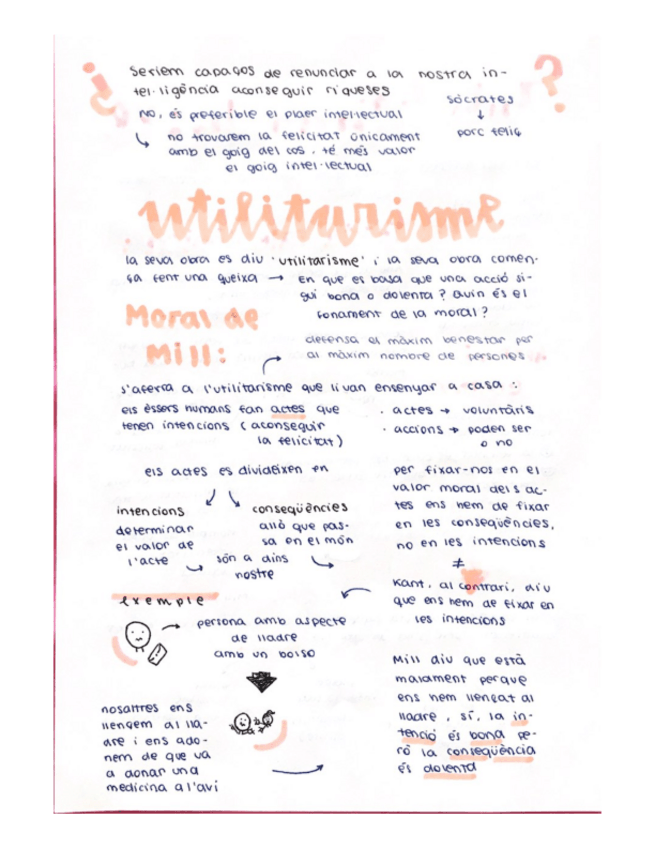 ¿ Seríem capaços de renunciar a la nostra in- ?
tel·ligència aconseguir riqueses
No, és preferible el plaer intel·lectual
sòcrates
↓
porc feliç
no trovarem la felicitat únicament
amb el goig del cos, té més valor
el goig intel·lectual
utilitarisme
la seva obra es diu 'utilitarisme' i la seva obra comen-
ça fent una queixa → en que es basa que una acció si-
gui bona o dolenta? quin és el
fonament de la moral?
Moral de
Mill:
defensa el màxim benestar per
al màxim nombre de persones
s'aferra a l'utilitarisme que li van ensenyar a casa:
els éssers humans fan actes que
tenen intencions (aconseguir
la felicitat)
· actes → voluntàris
· accions → poden ser
o no
els actes es divideixen en
intencions
determinar
el valor de
l'acte
conseqüències
allò que pas-
sa en el món
són a dins
nostre
per fixar-nos en el
valor moral dels ac-
tes ens hem de fixar
en les conseqüències,
no en les intencions
≠
Kant, al contrari, diu
que ens hem de fixar en
les intencions
exemple
persona amb aspecte
de lladre
amb un bolso
nosaltres ens
llencem al lla-
dre i ens ado-
nem de que va
a donar una
medicina a l'avi
Mill diu que està
malament perque
ens hem llençat al
lladre, sí, la in-
tenció és bona pe-
rò la conseqüència
és dolenta